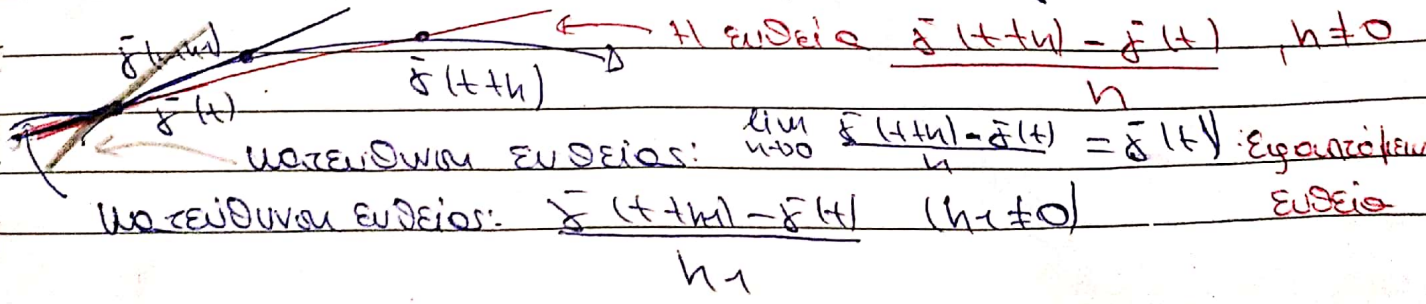 γ̄(t+h1)
← Η ευθεία \frac{γ̄(t+h) - γ̄(t)}{h}, h≠0
γ̄(t+h)
γ̄(t)
κατεύθυνση ευθείας: \lim_{h→0} \frac{γ̄(t+h) - γ̄(t)}{h} = γ̄(t)' : Εφαπτόμεν
ευθεία
κατεύθυνση ευθείας: \frac{γ̄(t+h1) - γ̄(t)}{h1} (h1≠0)